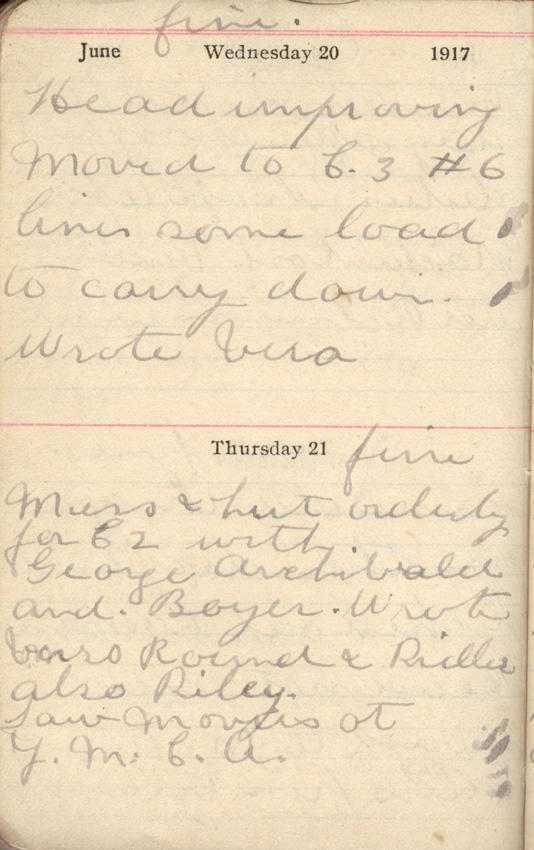 fine.
June Wednesday 20 1917
Head improving
Moved to C. 3 #6
lines some load
to carry down.
Wrote Vera
Thursday 21 fine
Mess & hut orderly
for C 2 with
George Archibald
and. Boyer. Wrote
Round &
also Riley.
Saw Movies at
Y. M. C. A.